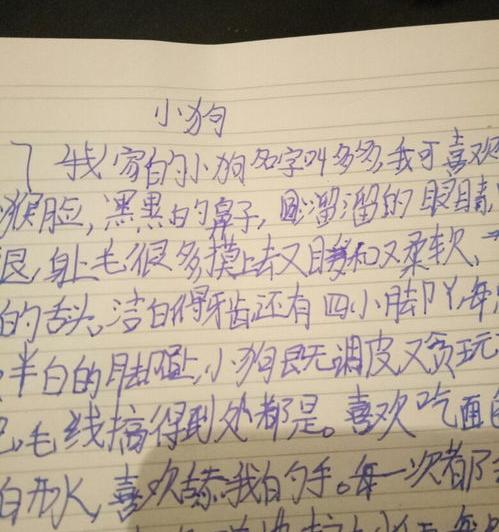 小狗
我家的小狗名字叫多多,我可喜欢
猴脸,黑黑的鼻子,圆溜溜的眼睛,
很,身上毛很多摸上去又暖和又柔软,
的舌头,洁白得牙齿,还有四小脚丫,每
半白的脚,小狗既无调皮又贪玩
毛线搞得到处都是。喜欢吃面包
白开水,喜欢舔我的手。每一次都